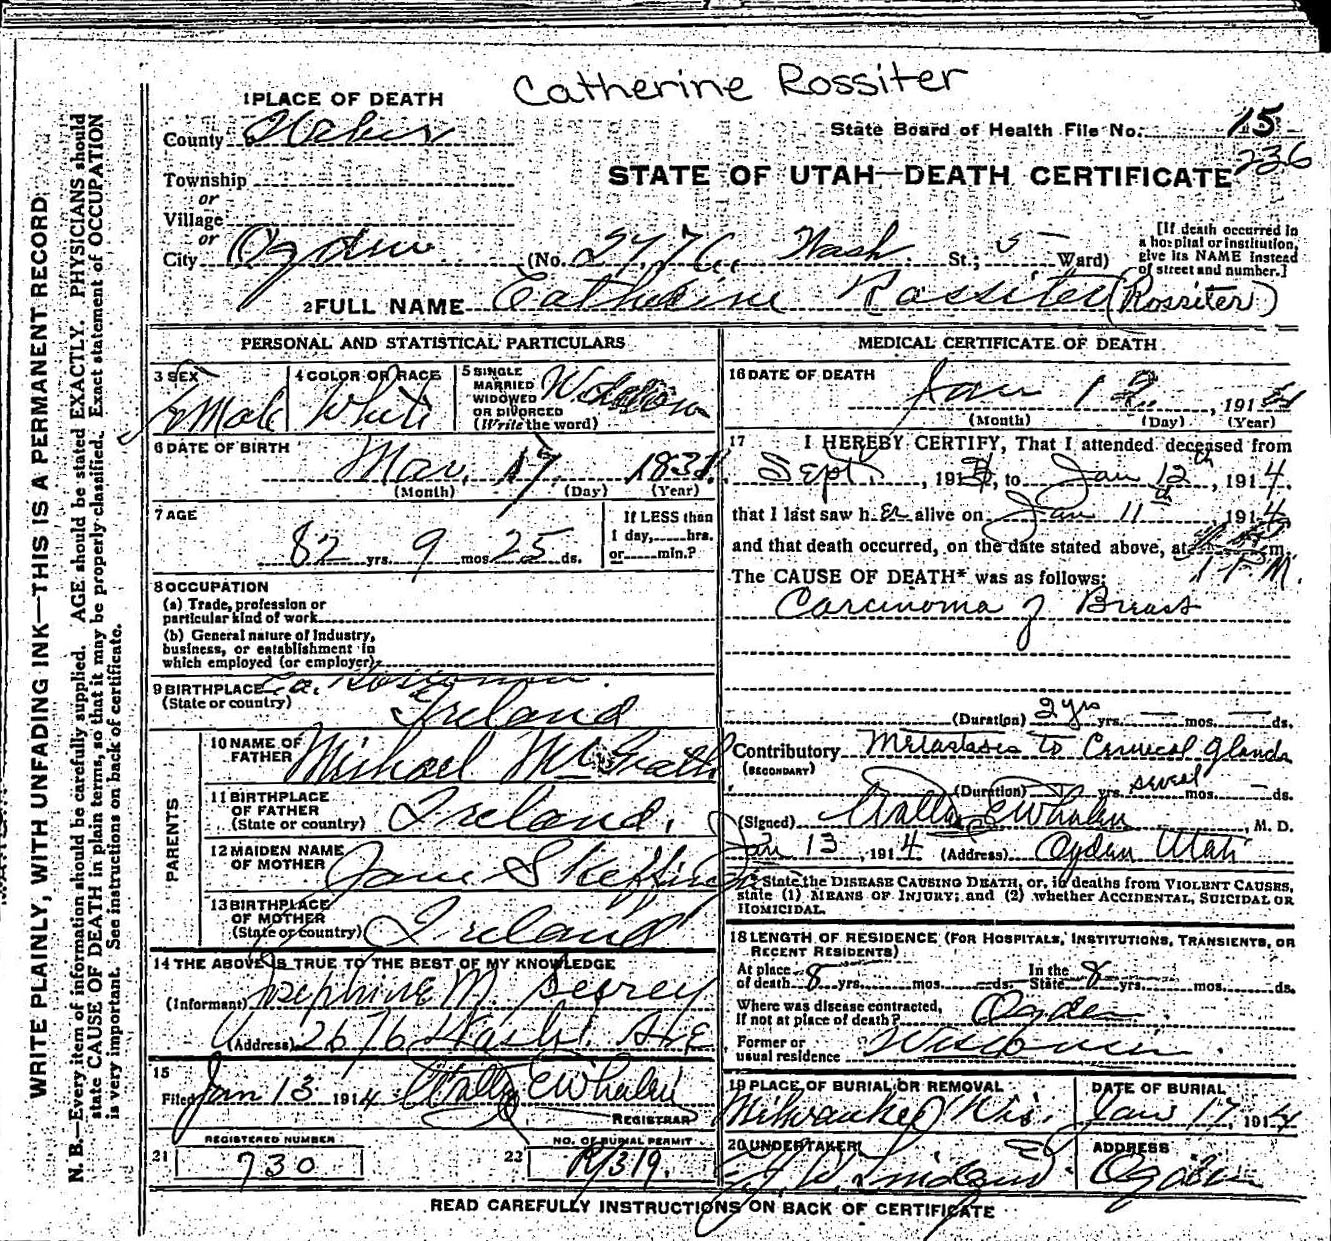 Catherine Rossiter
1 PLACE OF DEATH
County Weber
State Board of Health File No. 15
236
Township
or
Village
or
STATE OF UTAH—DEATH CERTIFICATE
City Ogden (No. 2676 Wash. St.; 5 Ward)
[If death occurred in
a hospital or institution,
give its NAME instead
of street and number.]
2 FULL NAME Catherine Rossiter (Rossiter)
PERSONAL AND STATISTICAL PARTICULARS
3 SEX
Female
4 COLOR OR RACE
White
5 SINGLE
MARRIED
WIDOWED
OR DIVORCED
(Write the word)
Widow
6 DATE OF BIRTH
Mar. 17, 1831
(Month) (Day) (Year)
7 AGE
82 yrs. 9 mos. 25 ds.
If LESS than
1 day, hrs.
or min.?
8 OCCUPATION
(a) Trade, profession or
particular kind of work
(b) General nature of Industry,
business, or establishment in
which employed (or employer)
9 BIRTHPLACE Co.
(State or country) Ireland
PARENTS
10 NAME OF
FATHER Michael McGrath
11 BIRTHPLACE
OF FATHER
(State or country) Ireland.
12 MAIDEN NAME
OF MOTHER Jane Skeffington
13 BIRTHPLACE
OF MOTHER
(State or country) Ireland
14 THE ABOVE IS TRUE TO THE BEST OF MY KNOWLEDGE
(Informant) Josephine M. Seerey
(Address) 2676 Wash. Ave
15
Filed Jan 13 1914 Walter E Whalen
REGISTRAR
REGISTERED NUMBER
21 730
NO. OF BURIAL PERMIT
22 R/319.
MEDICAL CERTIFICATE OF DEATH
16 DATE OF DEATH
Jan 12, 1914
(Month) (Day) (Year)
17 I HEREBY CERTIFY, That I attended deceased from
Sept., 1913, to Jan 12th, 1914,
that I last saw her alive on Jan 11th 1914,
and that death occurred, on the date stated above, at m.
1 P M.
The CAUSE OF DEATH* was as follows:
Carcinoma of Breast
(Duration) 2 yrs yrs. — mos. — ds.
Contributory Metastasis to Cervical glands
(SECONDARY)
(Duration) — yrs. several mos. — ds.
(Signed) Walter E Whalen, M. D.
Jan 13, 1914 (Address) Ogden Utah
* State the DISEASE CAUSING DEATH, or, in deaths from VIOLENT CAUSES,
state (1) MEANS OF INJURY; and (2) whether ACCIDENTAL, SUICIDAL OR
HOMICIDAL.
18 LENGTH OF RESIDENCE (FOR HOSPITALS, INSTITUTIONS, TRANSIENTS, OR
RECENT RESIDENTS)
At place of death 8 yrs. mos. ds. In the State 8 yrs. mos. ds.
Where was disease contracted,
If not at place of death? Ogden.
Former or
usual residence Wisconsin.
19 PLACE OF BURIAL OR REMOVAL
Milwaukee Wis.
DATE OF BURIAL
Jan 17, 1914
20 UNDERTAKER
ADDRESS
Ogden
READ CAREFULLY INSTRUCTIONS ON BACK OF CERTIFICATE
WRITE PLAINLY, WITH UNFADING INK—THIS IS A PERMANENT RECORD.
N. B.—Every item of information should be carefully supplied. AGE should be stated EXACTLY. PHYSICIANS should
state CAUSE OF DEATH in plain terms, so that it may be properly classified. Exact statement of OCCUPATION
is very important. See instructions on back of certificate.